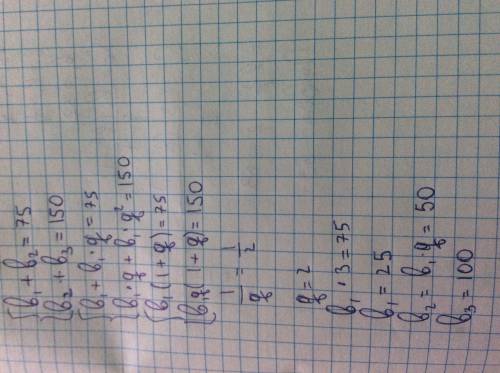 {b₁ + b₂ = 75
{b₂ + b₃ = 150
{b₁ + b₁·q = 75
{b₁·q + b₁·q² = 150
{b₁(1+q) = 75
{b₁q(1+q) = 150
1/q = 1/2
q = 2
b₁·3 = 75
b₁ = 25
b₂ = b₁·q = 50
b₃ = 100